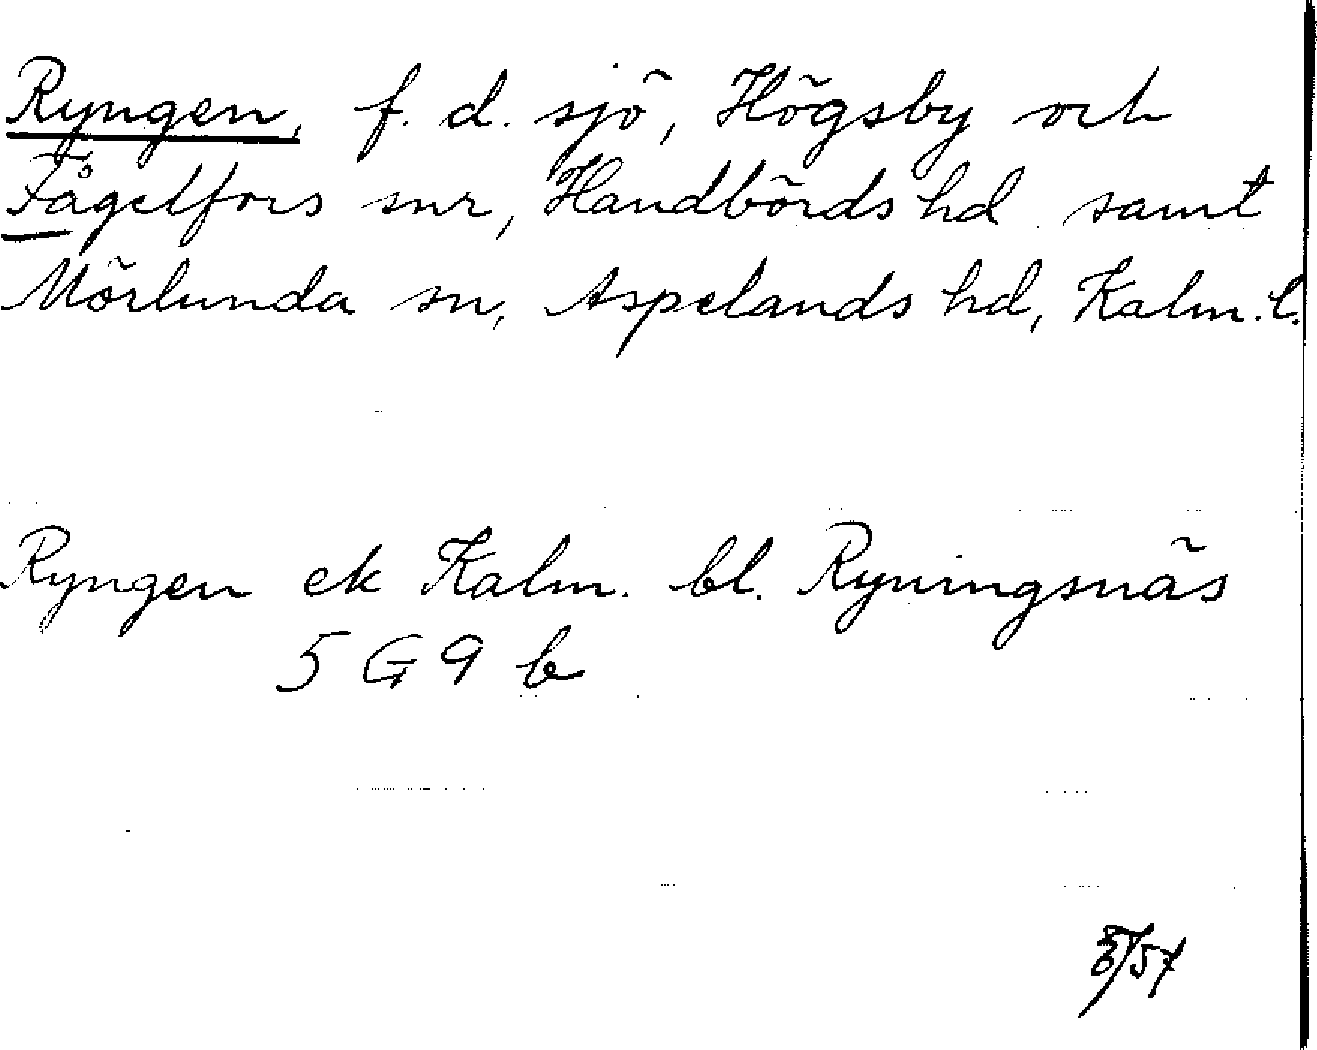 Ryngen, f. d. sjö, Högsby och
Fågelfors snr, Handbörds hd samt
Mörlunda sn, Aspelands hd, Kalm. l.
Ryngen ek Kalm. bl. Ryningsnäs
5 G 9 b